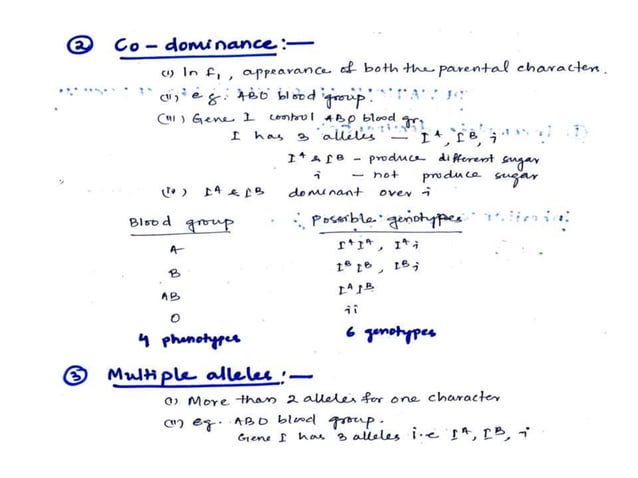 ② Co-dominance :—
(i) In F₁, appearance of both the parental characters.
(ii) eg: ABO blood group.
(iii) Gene I control ABO blood gr.
I has 3 alleles — Iᴬ, Iᴮ, i
Iᴬ & Iᴮ – produce different sugar
i – not produce sugar
(iv) Iᴬ & Iᴮ dominant over i
Blood group Possible genotypes
A IᴬIᴬ, Iᴬi
B IᴮIᴮ, Iᴮi
AB IᴬIᴮ
O ii
4 phenotypes 6 genotypes
③ Multiple alleles :—
(i) More than 2 alleles for one character
(ii) eg. ABO blood group.
Gene I has 3 alleles i.e Iᴬ, Iᴮ, i